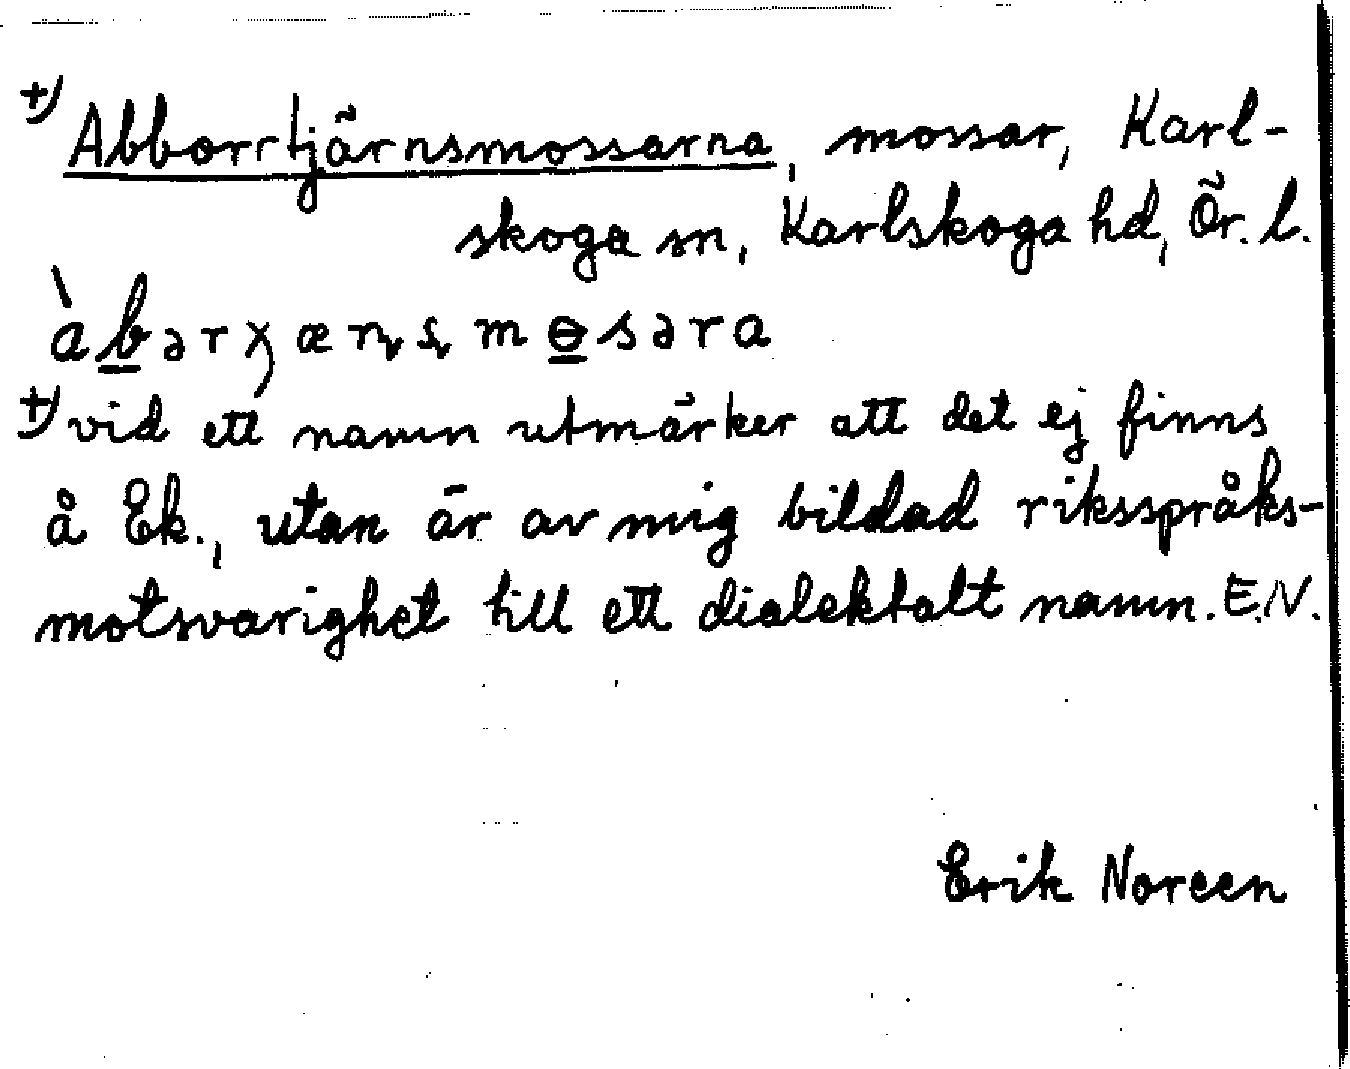 +) Abborrtjärnsmossarna, mossar, Karl-
skoga sn, Karlskoga hd, Ör. l.
àbərχæɳʂmɵsəra
+) vid ett namn utmärker att det ej finns
å Ek., utan är av mig bildad riksspråks-
motsvarighet till ett dialektalt namn. E.N.
Erik Noreen